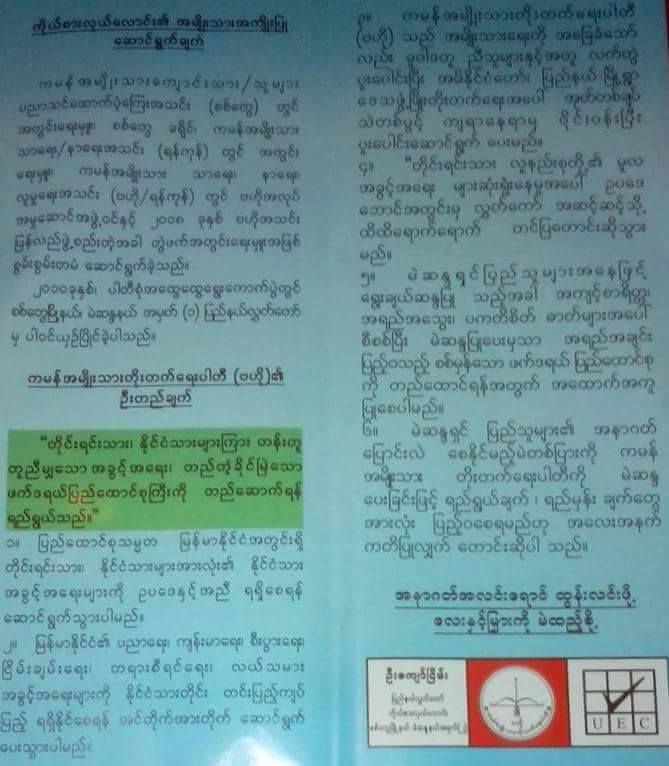 ကိုယ်စားလှယ်လောင်း၏ အမျိုးသားအကျိုးပြု
ဆောင်ရွက်ချက်
ကမန်အမျိုးသားကျောင်းသား/သူများ
ပညာသင်ထောက်ပံ့ကြေးအသင်း (စစ်တွေ) တွင်
အတွင်းရေးမှူး၊ စစ်တွေ ခရိုင်၊ ကမန်အမျိုးသား
သာရေး/နာရေးအသင်း (ရန်ကုန်) တွင် အတွင်း
ရေးမှူး၊ ကမန်အမျိုးသား သာရေး၊ နာရေး၊
လူမှုရေးအသင်း (ဗဟို/ရန်ကုန်) တွင် ဗဟိုအလုပ်
အမှုဆောင်အဖွဲ့ဝင်နှင့် ၂၀၀၈ ခုနှစ် ဗဟိုအသင်း
ပြန်လည်ဖွဲ့စည်းတဲ့အခါ တွဲဖက်အတွင်းရေးမှူးအဖြစ်
စွမ်းစွမ်းတမံ ဆောင်ရွက်ခဲ့သည်။
၂၀၁၀ခုနှစ်၊ ပါတီစုံအထွေထွေရွေးကောက်ပွဲတွင်
စစ်တွေမြို့နယ်၊ မဲဆန္ဒနယ် အမှတ် (၁) ပြည်နယ်လွှတ်တော်
မှ ပါဝင်ယှဉ်ပြိုင်ခဲ့ပါသည်။
ကမန်အမျိုးသားတိုးတက်ရေးပါတီ (ဗဟို)၏
ဦးတည်ချက်
"တိုင်းရင်းသား၊ နိုင်ငံသားများကြား တန်းတူ
တူညီမျှသော အခွင့်အရေး၊ တည်တံ့ခိုင်မြဲသော
ဖက်ဒရယ်ပြည်ထောင်စုကြီးကို တည်ဆောက်ရန်
ရည်ရွယ်သည်။"
၁။ ပြည်ထောင်စုသမ္မတ မြန်မာနိုင်ငံအတွင်းရှိ
တိုင်းရင်းသား၊ နိုင်ငံသားများအားလုံး၏ နိုင်ငံသား
အခွင့်အရေးများကို ဥပဒေနှင့်အညီ ရရှိစေရန်
ဆောင်ရွက်သွားပါမည်။
၂။ မြန်မာနိုင်ငံ၏ ပညာရေး၊ ကျန်းမာရေး၊ စီးပွားရေး၊
ငြိမ်းချမ်းရေး၊ တရားစီရင်ရေး၊ လယ်သမား
အခွင့်အရေးများကို နိုင်ငံသားတိုင်း တင်းပြည့်ကျပ်
ပြည့် ရရှိနိုင်စေရန် အင်တိုက်အားတိုက် ဆောင်ရွက်
ပေးသွားပါမည်။
၃။ ကမန်အမျိုးသားတိုးတက်ရေးပါတီ
(ဗဟို) သည် အမျိုးသားရေးကို အခြေခံသော်
လည်း မူဝါဒတူ ညီသူများနှင့်အတူ လက်တွဲ
ပူးပေါင်းပြီး အမိနိုင်ငံတော်၊ ပြည်နယ်၊ မြို့ရွာ
ဒေသဖွံ့ဖြိုးတိုးတက်ရေးအပေါ် အုတ်တစ်ချပ်
သဲတစ်ပွင့် ကျရာနေရာမှ ဝိုင်းဝန်းပြီး
ပူးပေါင်းဆောင်ရွက် ပေးမည်။
၄။ "တိုင်းရင်းသား လူနည်းစုတို့၏ မူလ
အခွင့်အရေး များဆုံးရှုံးနေမှုအပေါ် ဥပဒေ
ဘောင်အတွင်းမှ လွှတ်တော် အဆင့်ဆင့်သို့
ထိထိရောက်ရောက် တင်ပြတောင်းဆိုသွား
မည်။
၅။ မဲဆန္ဒရှင်ပြည်သူများအနေဖြင့်
ရွေးချယ်ဆန္ဒပြု သည့်အခါ အကျင့်စာရိတ္တ၊
အရည်အသွေး၊ ပကတိစိတ် ဓာတ်များအပေါ်
စိစစ်ပြီး မဲဆန္ဒပြုပေးမှသာ အရည်အချင်း
ပြည့်ဝသည့် စစ်မှန်သော ဖက်ဒရယ် ပြည်ထောင်စု
ကို တည်ထောင်ရန်အတွက် အထောက်အကူ
ပြုစေပါမည်။
၆။ မဲဆန္ဒရှင် ပြည်သူများ၏ အနာဂတ်
ပြောင်းလဲ စေနိုင်မည့်မဲတစ်ပြားကို ကမန်
အမျိုးသား တိုးတက်ရေးပါတီကို မဲဆန္ဒ
ပေးခြင်းဖြင့် ရည်ရွယ်ချက် ၊ ရည်မှန်း ချက်တွေ
အားလုံး ပြည့်ဝစေရမည်ဟု အလေးအနက်
ကတိပြုလျှက် တောင်းဆိုပါ သည်။
အနာဂတ်အလင်းရောင် ထွန်းလင်းဖို့
လေးနှင့်မြှားကို မဲထည့်စို့
ဦးကျော်ငြိမ်း
ပြည်နယ်လွှတ်တော်
ကိုယ်စားလှယ်လောင်း
UEC